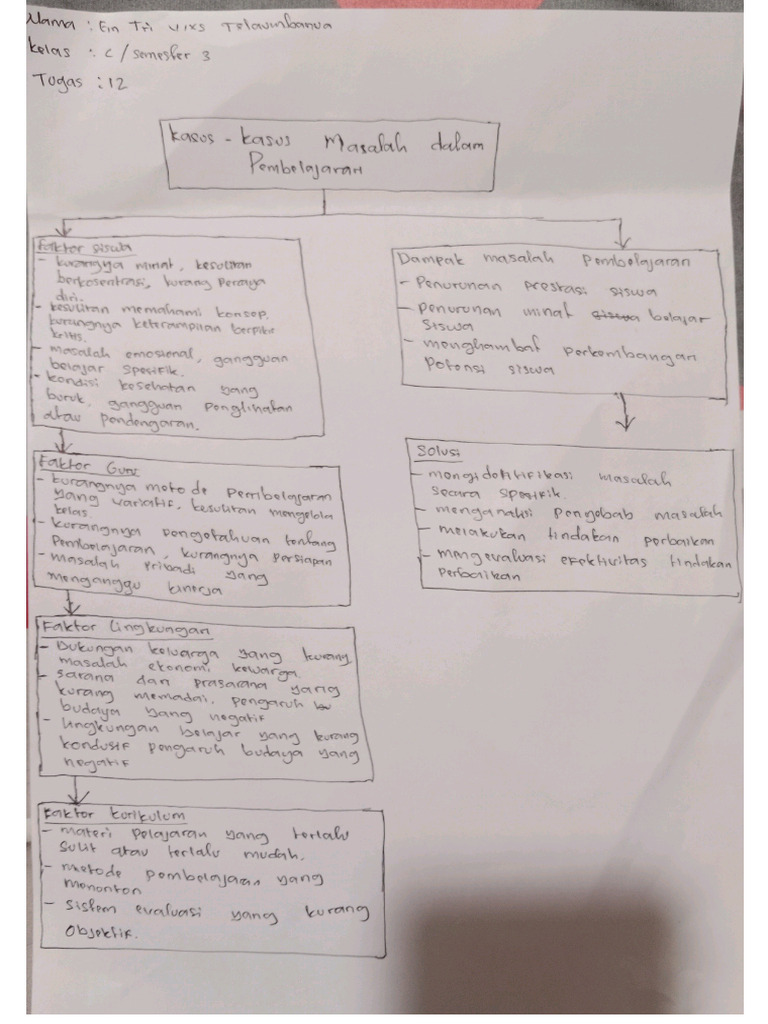 Nama : Ein Tri vixs Telaumbanua
kelas : C / semester 3
Tugas : 12
Kasus - kasus Masalah dalam
Pembelajaran
Faktor siswa
- kurangnya minat, kesulitan
berkosentrasi, kurang Percaya
diri.
- kesulitan memahami konsep,
kurangnya keterampilan berpikir
kritis.
- masalah emosional, gangguan
belajar spesifik.
- kondisi kesehatan yang
buruk, gangguan penglihatan
atau pendengaran.
Faktor Guru
- kurangnya metode Pembelajaran
yang variatif, kesulitan mengelola
kelas.
- kurangnya pengetahuan tentang
Pembelajaran, kurangnya persiapan
- masalah pribadi yang
menganggu kinerja
Faktor lingkungan
- Dukungan keluarga yang kurang
masalah ekonomi keluarga.
- sarana dan prasarana yang
kurang memadai, pengaruh
budaya yang negatif
- lingkungan belajar yang kurang
kondusif pengaruh budaya yang
negatif
Faktor kurikulum
- materi pelajaran yang terlalu
sulit atau terlalu mudah.
- metode pembelajaran yang
mononton
- sistem evaluasi yang kurang
objektif.
Dampak masalah Pembelajaran
- Penurunan prestasi siswa
- penurunan minat siswa belajar
siswa
- menghambat perkembangan
potensi siswa
Solusi
- mengidentifikasi masalah
secara spesifik.
- menganalisi penyebab masalah
- melakukan tindakan perbaikan
- mengevaluasi efektivitas tindakan
perbaikan